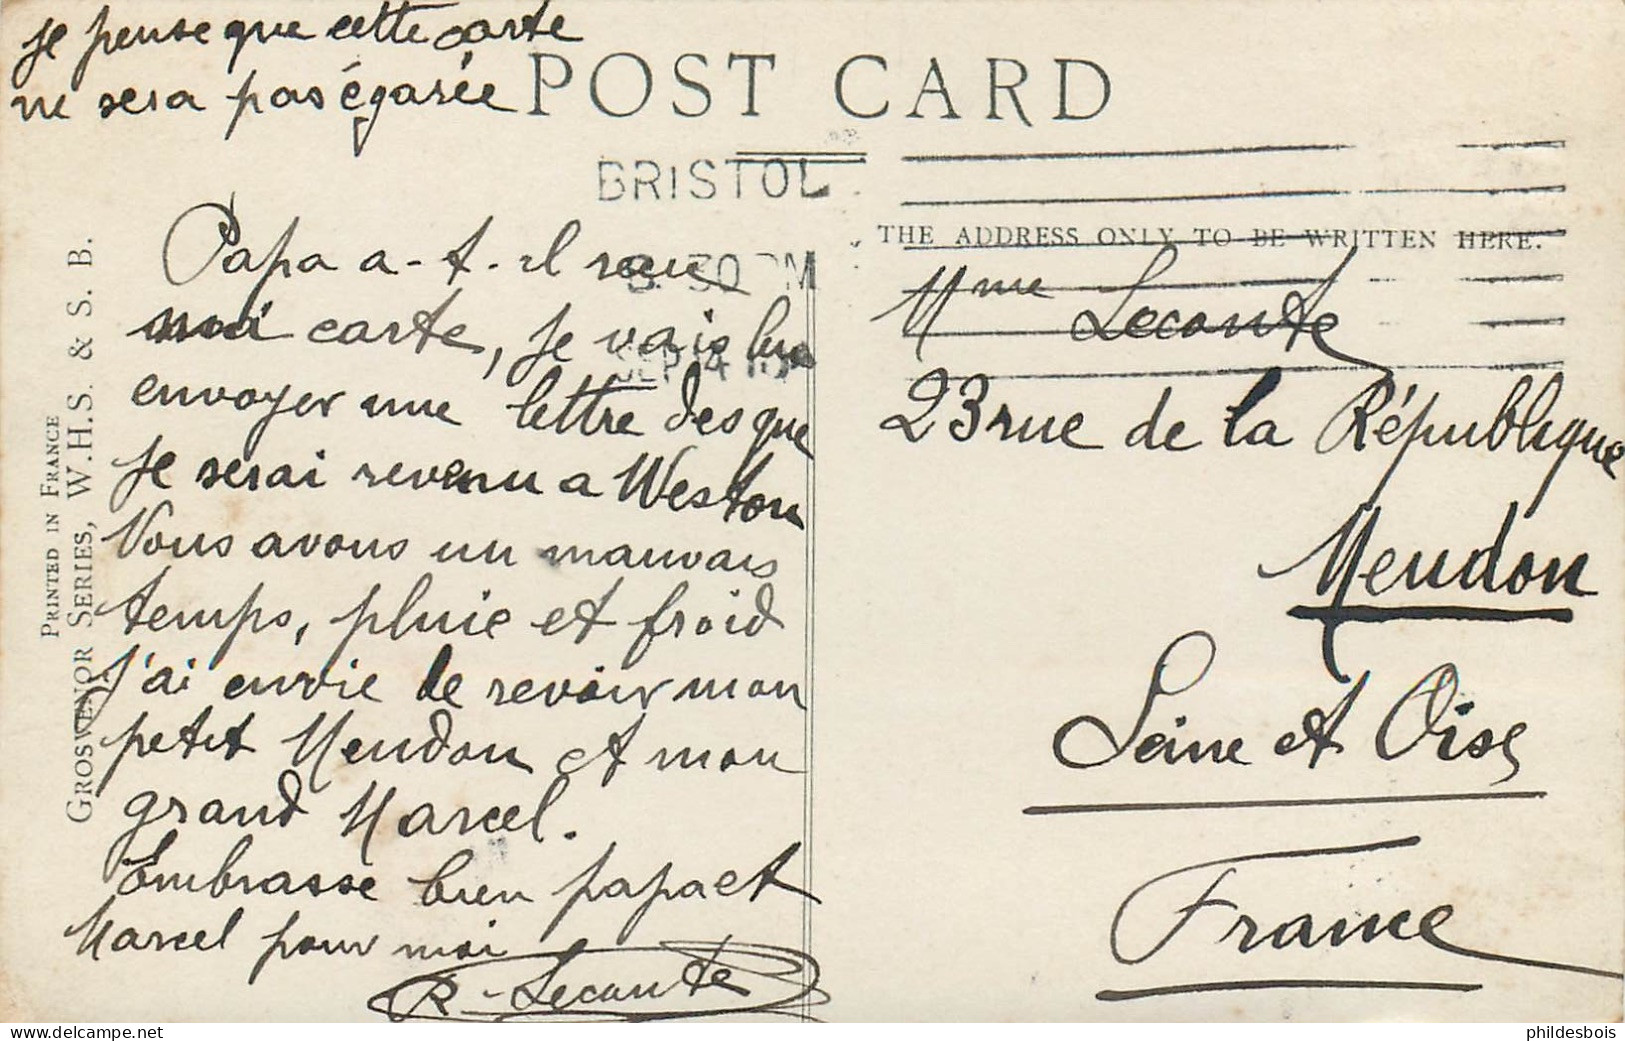 je pense que cette carte
ne sera pas égarée
POST CARD
BRISTOL
30 PM
SEP 14
THE ADDRESS ONLY TO BE WRITTEN HERE.
PRINTED IN FRANCE
GROSVENOR SERIES, W.H.S. & S. B.
Papa a-t-il reçu
carte, je vais lui
envoyer une lettre des que
je serai revenu a Weston
Nous avons un mauvais
temps, pluie et froid
j'ai envie de revoir mon
petit Meudon et mon
grand Marcel.
Embrasse bien papa et
Marcel pour moi
R. Leconte
Mme Leconte
23 rue de la République
Meudon
Seine et Oise
France
phildesbois